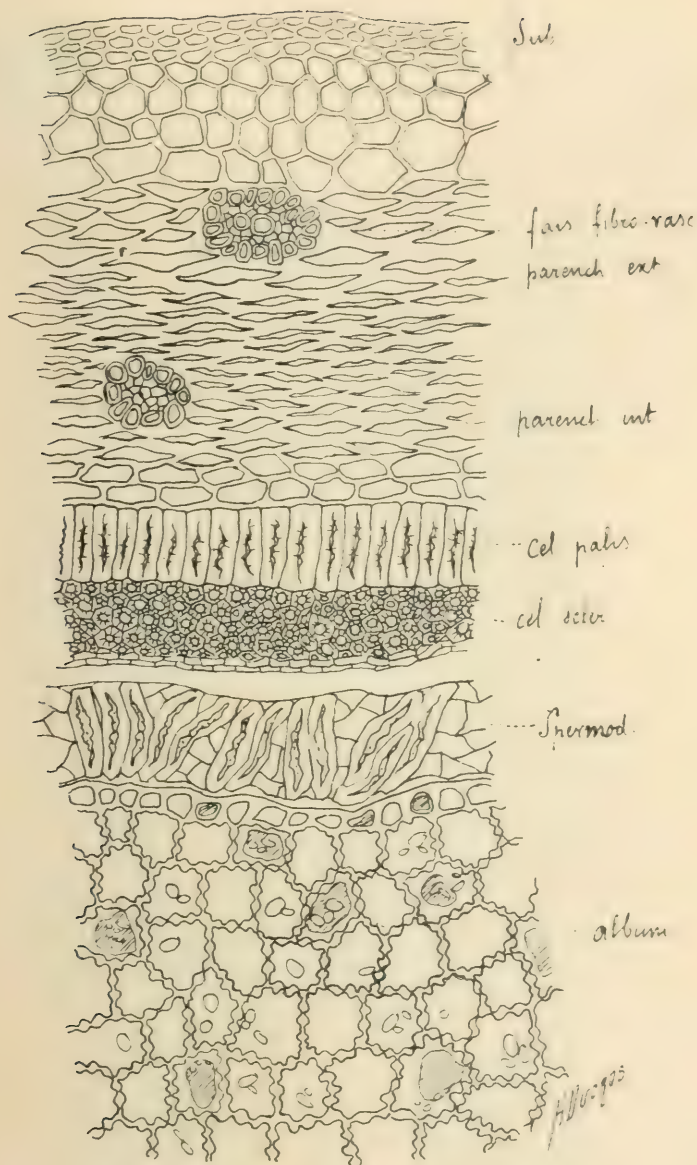 Sub
fais fibro-vasc
parench ext
parench int
cel palis
cel scler
Spermod.
album